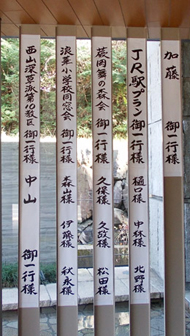 加藤
JR駅プラン御一行様 樋口様 中林様 北野様
葭岡舞の森会 御一行様 久保様 久政様 松田様
浪華小学校同窓会 御一行様 森山様 伊藤様 秋永様
西山深草派第10教区 御一行様 中山 御一行様